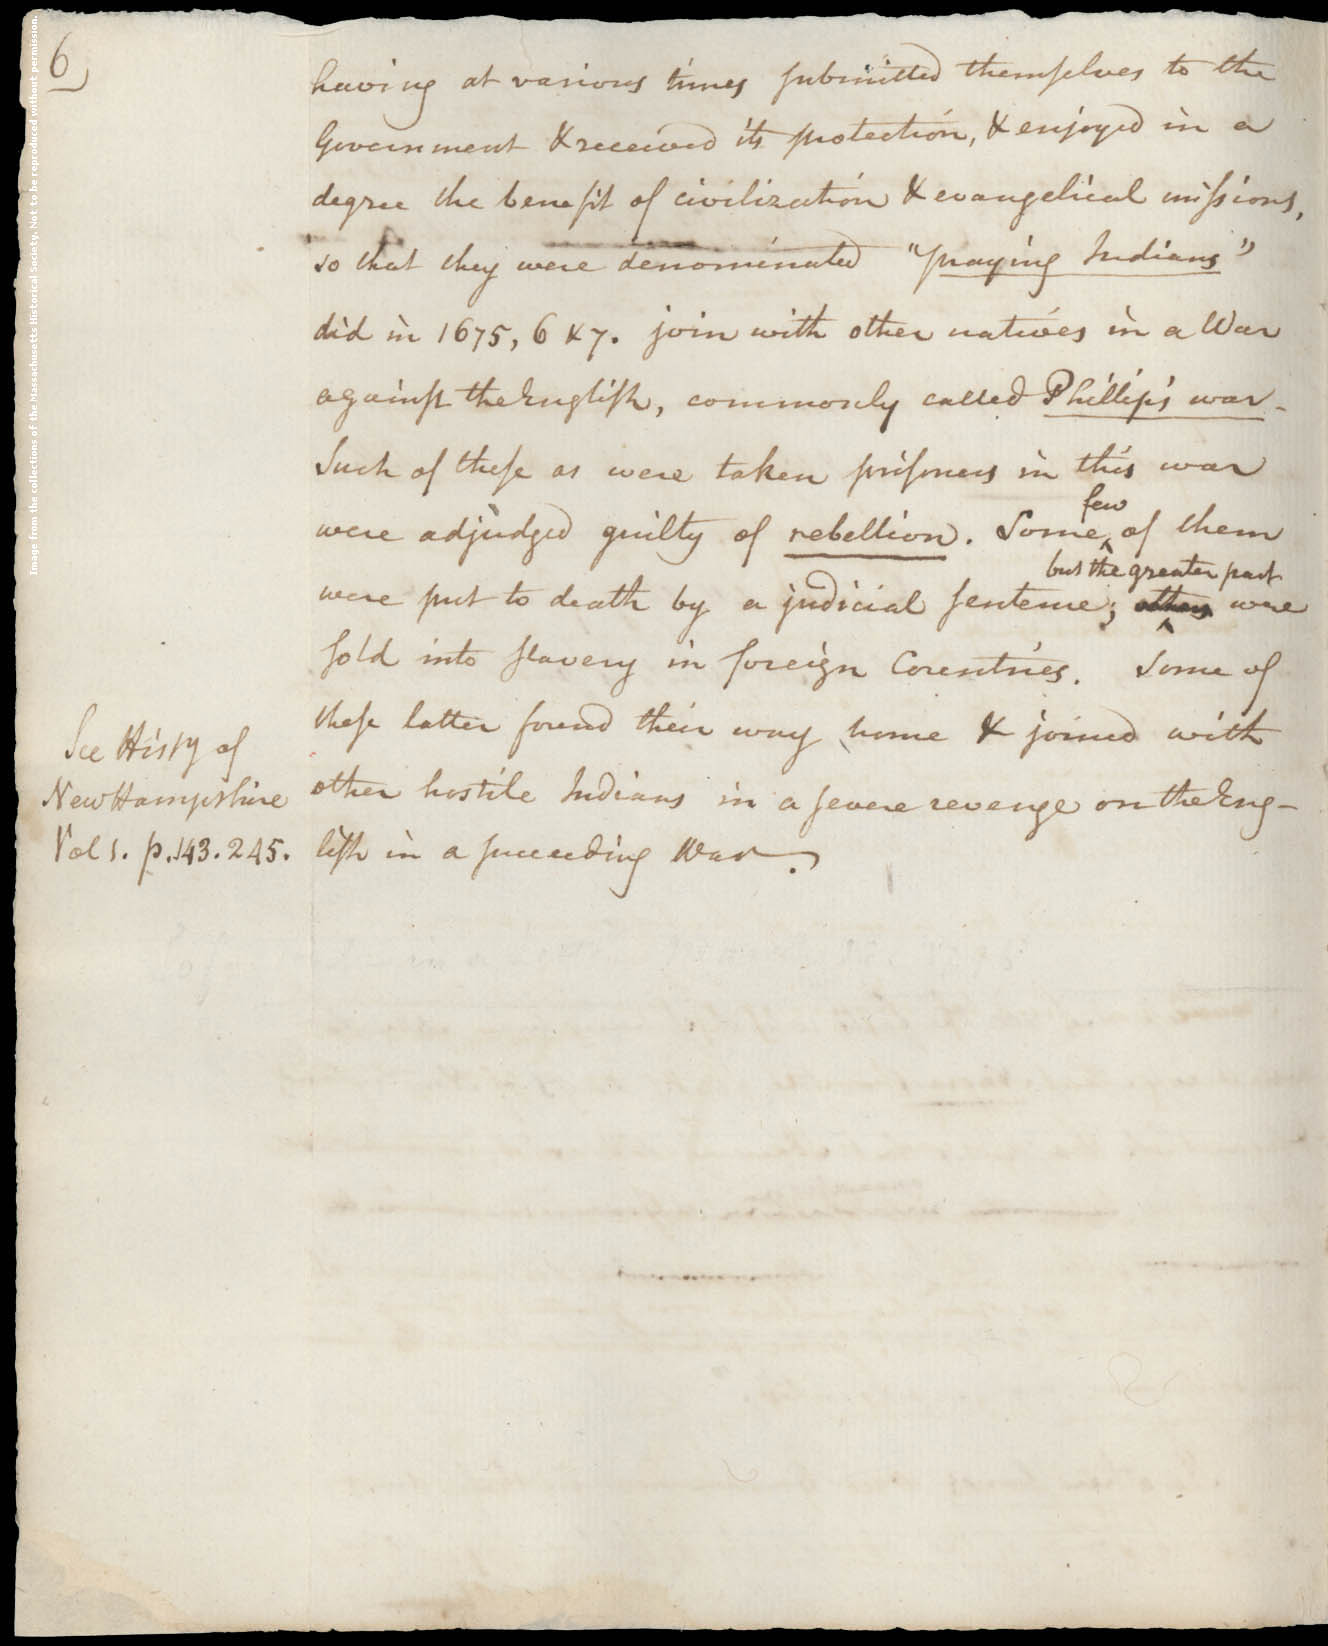 6
having at various times submitted themselves to the
Government & received its protection, & enjoyed in a
degree the benefit of civilization & evangelical missions,
so that they were denominated "praying Indians"
did in 1675, 6 & 7. join with other natives in a War
against the English, commonly called Phillip's war.
Such of these as were taken prisoners in this war
few
were adjudged guilty of rebellion. Some of them
but the greater part
were put to death by a judicial sentence; others were
sold into slavery in foreign Countries. Some of
these latter found their way home & joined with
other hostile Indians in a severe revenge on the Eng-
lish in a succeeding War.
See Histy of
New Hampshire
Vol 1. p. 143. 245.
Image from the collections of the Massachusetts Historical Society. Not to be reproduced without permission.